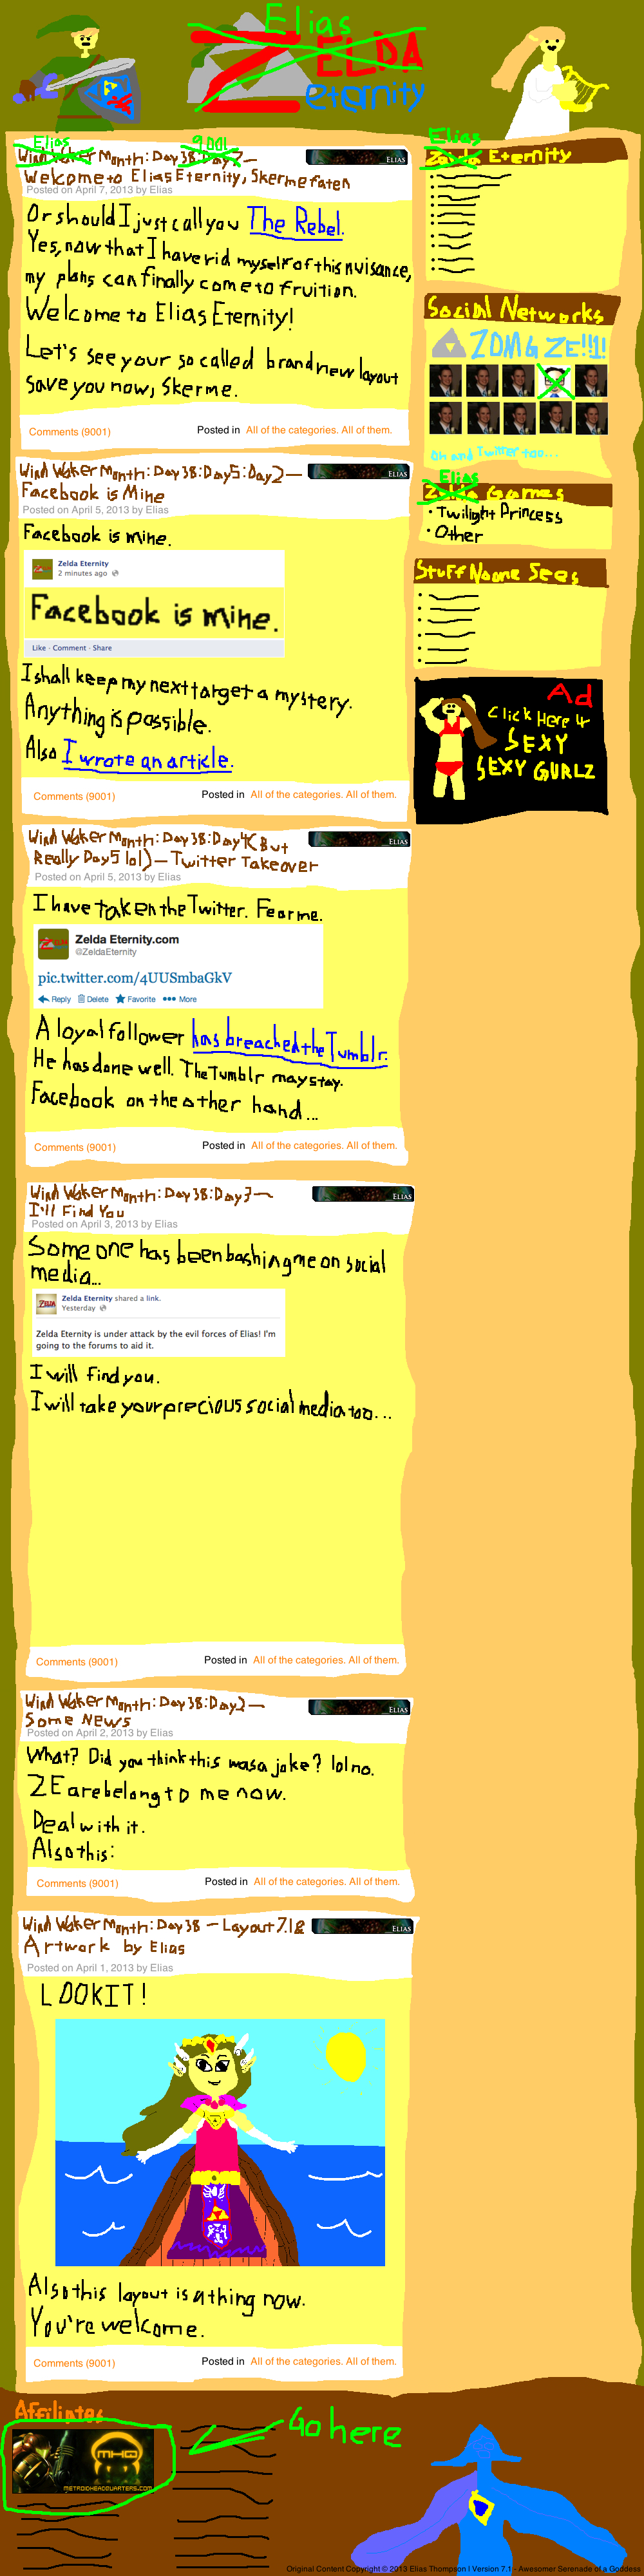 Elias
ZELDA
eternity
Elias 9001
Wind Waker Month: Day 38: Day 7 —
Welcome to Elias Eternity, Skerme faten
ELIAS
Posted on April 7, 2013 by Elias
Or should I just call you The Rebel.
Yes, now that I have rid myself of this nuisance,
my plans can finally come to fruition.
Welcome to Elias Eternity!
Let's see your so called brand new layout
save you now, Skerme.
Comments (9001) Posted in All of the categories. All of them.
Wind Waker Month: Day 38: Day 5: Day 2 —
Facebook is Mine
ELIAS
Posted on April 5, 2013 by Elias
Facebook is mine.
Zelda Eternity
2 minutes ago
Facebook is mine.
Like · Comment · Share
I shall keep my next target a mystery.
Anything is possible.
Also I wrote an article.
Comments (9001) Posted in All of the categories. All of them.
Wind Waker Month: Day 38: Day 4 (But
Really Day 5 lol) — Twitter Takeover
ELIAS
Posted on April 5, 2013 by Elias
I have taken the Twitter. Fear me.
Zelda Eternity.com
@ZeldaEternity
pic.twitter.com/4UUSmbaGkV
Reply Delete Favorite More
A loyal follower has breached the Tumblr.
He has done well. The Tumblr may stay.
Facebook on the other hand...
Comments (9001) Posted in All of the categories. All of them.
Wind Waker Month: Day 38: Day 3 —
I'll Find You
ELIAS
Posted on April 3, 2013 by Elias
Someone has been bashing me on social
media...
Zelda Eternity shared a link.
Yesterday
Zelda Eternity is under attack by the evil forces of Elias! I'm
going to the forums to aid it.
I will find you.
I will take your precious social media too...
Comments (9001) Posted in All of the categories. All of them.
Wind Waker Month: Day 38: Day 2 —
Some News
ELIAS
Posted on April 2, 2013 by Elias
What? Did you think this was a joke? lol no.
ZE are belong to me now.
Deal with it.
Also this:
Comments (9001) Posted in All of the categories. All of them.
Wind Waker Month: Day 38 — Layout 7.1 &
Artwork by Elias
ELIAS
Posted on April 1, 2013 by Elias
LOOKIT!
Also this layout is a thing now.
You're welcome.
Comments (9001) Posted in All of the categories. All of them.
Elias
Zelda Eternity
Social Networks
ZOMG ZE!!1!
Oh and Twitter too...
Elias
Zelda Games
· Twilight Princess
· Other
Stuff Noone Sees
Ad
Click Here 4
SEXY
SEXY GURLZ
Affiliates
MHQ
METROIDHEADQUARTERS.COM
Go here
Original Content Copyright © 2013 Elias Thompson | Version 7.1 - Awesomer Serenade of a Goddess